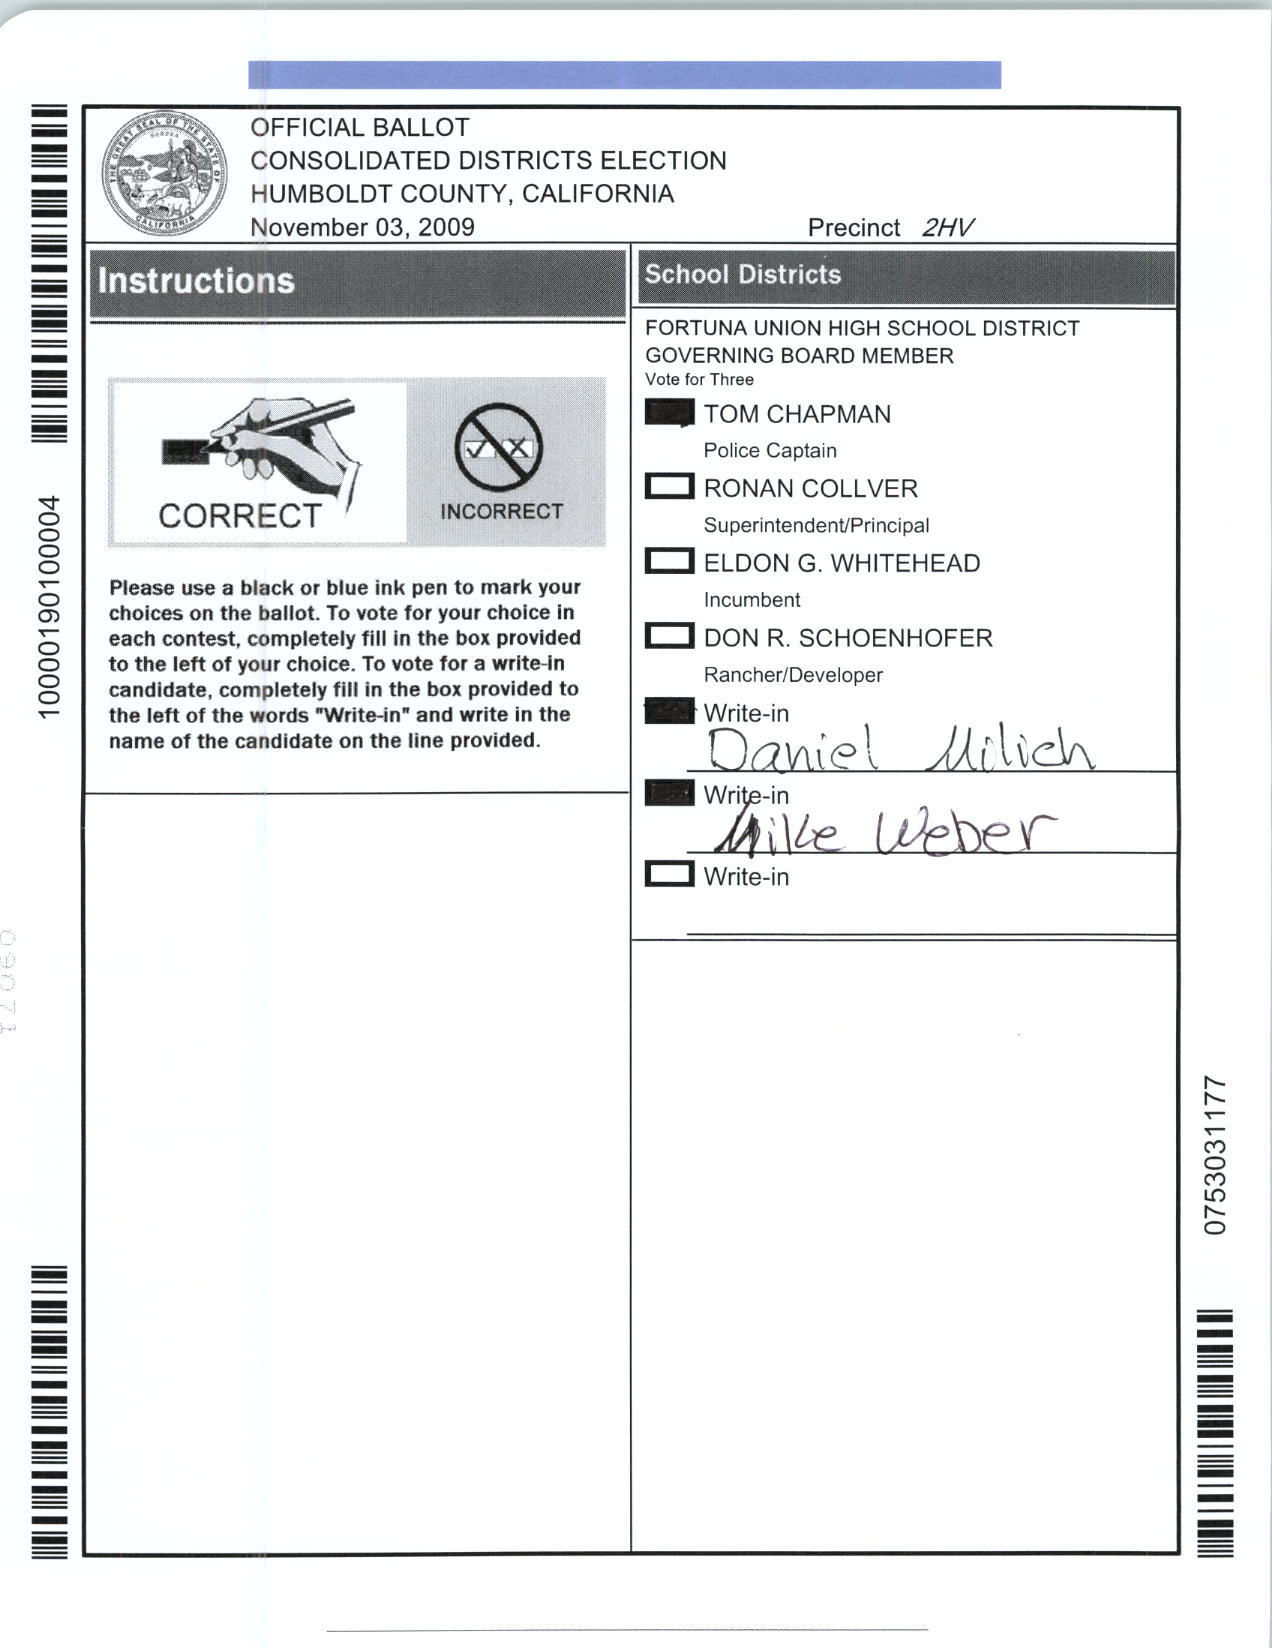 OFFICIAL BALLOT
CONSOLIDATED DISTRICTS ELECTION
HUMBOLDT COUNTY, CALIFORNIA
November 03, 2009
Precinct 2HV
THE GREAT SEAL OF THE STATE OF CALIFORNIA
EUREKA
Instructions
CORRECT
INCORRECT
Please use a black or blue ink pen to mark your
choices on the ballot. To vote for your choice in
each contest, completely fill in the box provided
to the left of your choice. To vote for a write-in
candidate, completely fill in the box provided to
the left of the words "Write-in" and write in the
name of the candidate on the line provided.
School Districts
FORTUNA UNION HIGH SCHOOL DISTRICT
GOVERNING BOARD MEMBER
Vote for Three
TOM CHAPMAN
Police Captain
RONAN COLLVER
Superintendent/Principal
ELDON G. WHITEHEAD
Incumbent
DON R. SCHOENHOFER
Rancher/Developer
Write-in
Daniel Milich
Write-in
Mike Weber
Write-in
10000190100004
0753031177